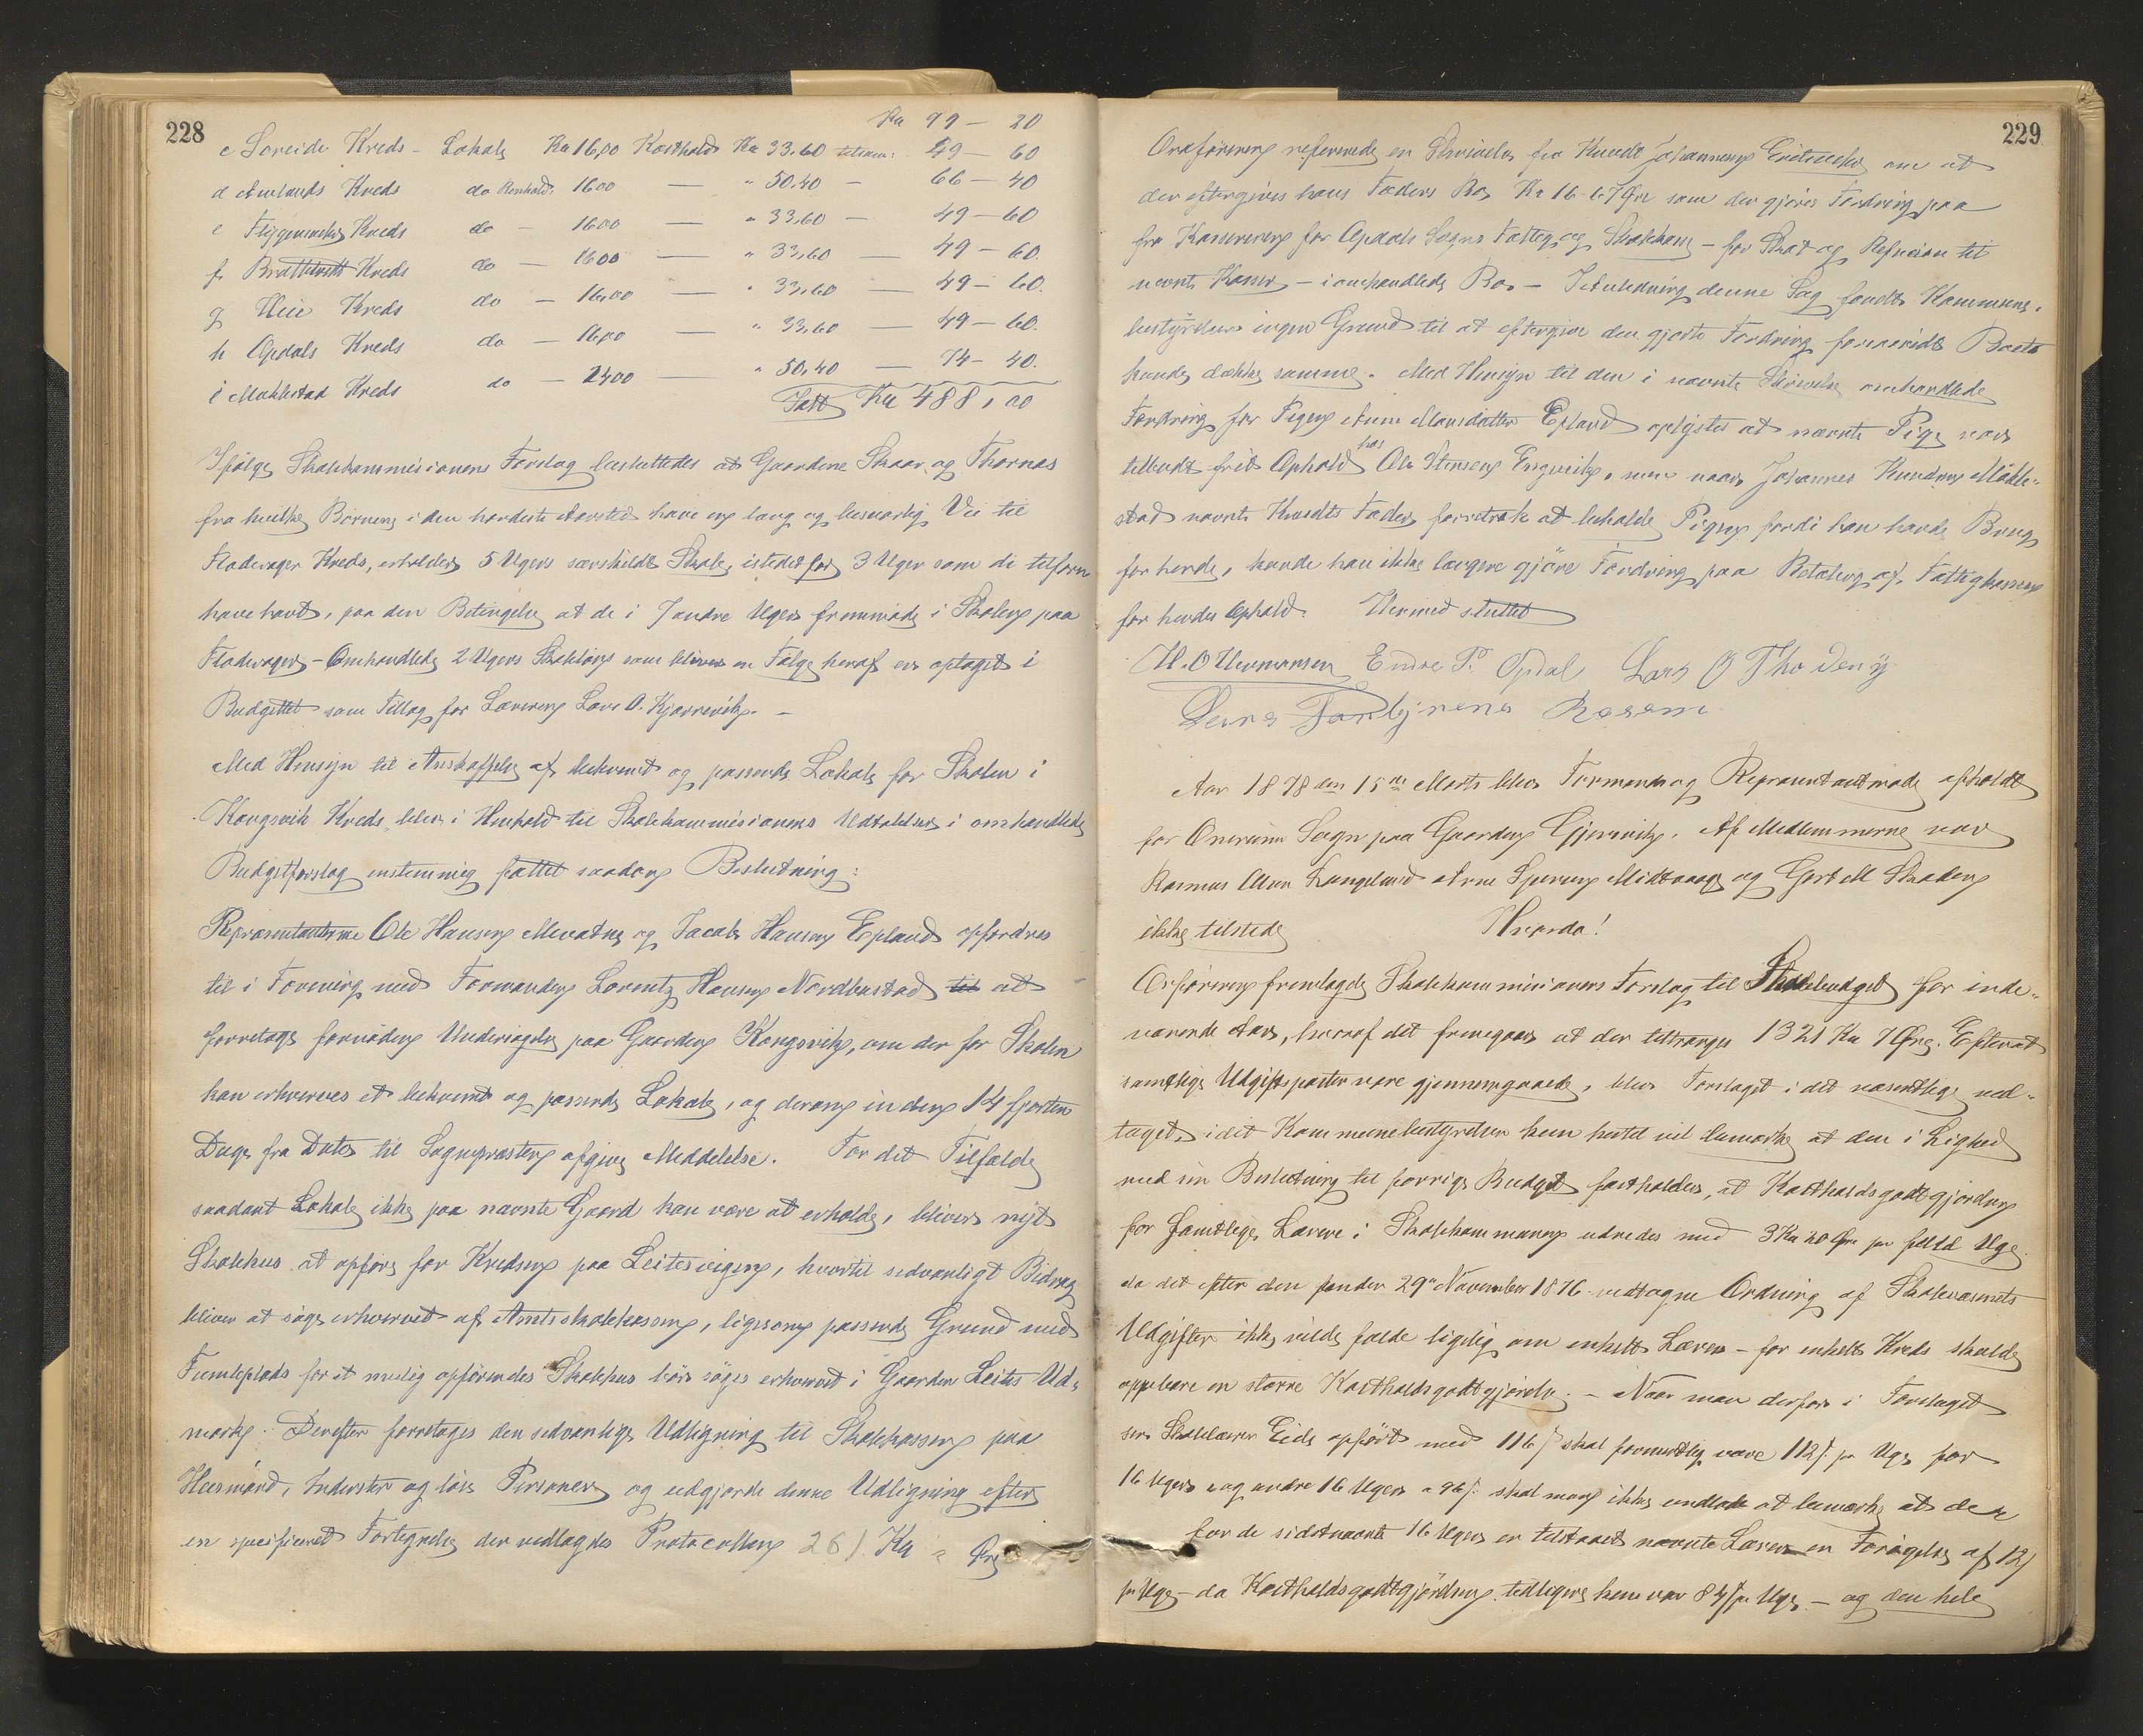 228
Kr 99 - 20
c Søreide Kreds - Lokale Kr 16,00 Kosthold Kr 33.60 tilsam: 49 - 60
d Aarlands Kreds do Renhold 1600 — " 50.40 — 66 - 40
e Kreds do - 1600 — " 33.60 — 49 - 60
f. Kreds do - 1600 — " 33,60 — 49 - 60.
g Kreds do - 16,00 — " 33,60 — 49 - 60.
h Opdals Kreds do - 16,00 — " 33,60 — 49 - 60.
i Møklestad Kreds do - 2400 — " 50,40 — 74 - 40.
Talt Kr 488,00
Ifølge Skolekommisionens Forslag besluttedes at Gaardene Skaar og Thornæs
fra hvilke Børnene i den haardeste Aarstid have en lang og besværlig Vei til
Fladevager Kreds, erholder 5 Ugers særskildt Skole istedetfor 3 Uger som de tilforn
have havt, paa den Betingelse at de i 7 andre Uger fremmøde i Skolen paa
Fladevager - Omhandlede 2 Ugers Skoleløn som bliver en Følge heraf er optaget i
Budgettet som Tillæg for Læreren Lars O. Kjørrevik. -
Med Hensyn til Anskaffelse af bekvemt og passende Lokale for Skolen i
Kongsvik Kreds blev i Henhold til Skolekommisionens Udtalelser i omhandlede
Budgetforslag enstemmig fattet saadan Beslutning:
Repræsentanterne Ole Hansen Mevatne og Jacob Hansen Epland opfordres
til i Forening med Formanden Lorentz Hansen Nordbustad til at
foretage fornøden Undersøgelse paa Gaarden Kongsvik, om der for Skolen
kan erhverves et bekvemt og passende Lokale, og derom inden 14 fjorten
Dage fra Dato til Sognepresten afgive Meddelelse. For det Tilfælde
saadant Lokale ikke paa nævnte Gaard kan være at erholde, bliver nyt
Skolehus at opføre for Kredsen paa Leitesvigen, hvortil sedvanligt Bidrag
bliver at søge erhvervet af Amtsskolekassen, ligesom passende Grund med
Tomteplads for et muelig opførendes Skolehus bør søges erhvervet i Gaarden Leites Ud-
mark. Derefter foretoges den sedvanlige Udligning til Skolekassen paa
Huusmænd, Inderster og løse Personer og udgjorde denne Udligning efter
en specificeret Fortegnelse der vedlagdes Protocollen 261 Kr " Øre
229
Ordføreren refererede en Skrivelse fra Knudt Johannesen om at
der eftergives hans Faders Bo, Kr 16 67 Øre som der gjøres Fordring paa
fra Kassereren for Opdals Sogns Fattig og Skolekasse - for Skat og Refusion til
nævnte Kasser - i omhandlede Bo. - I Anledning denne Sag fandt Kommune-
bestyrelsen ingen Grund til at eftergive den gjorte Fordring forsaavidt Boet
kunde dække samme. Med Hensyn til den i nævnte Skrivelse omhandlede
Fordring for Pigen Anne Monsdatter Epland oplystes at nævnte Pige var
tilbudt frit Ophold hos Ole Stensen Engevik, men naar Johannes Knudsen Møkle-
stad nævnte Knudts Fader foretrak at beholde Pigen fordi han havde Brug
for hende, kunde han ikke længere gjøre Fordring paa Betaling af Fattigkassen
for hendes Ophold. Hermed sluttet
H. O Hermansen Endre P. Opdal Lars O Tho
Røsein
Aar 1878 den 15de Marts blev Formands og Repræsentantmøde afholdt
for Onarims Sogn paa Gaarden Gjerevik. Af Medlemmerne var
Rasmus Olsen Langeland Arne Midtvaage og Gert M Skaden
ikke tilstede Hvorda!
Ordføreren fremlagde Skolekommisionens Forslag til Skolebudget for inde-
værende Aar, hvoraf det fremgaar at der tiltrænges 1321 Kr 7 Øre. Efterat
samtlige Udgiftsposter vare gjennemgaaede, blev Forslaget i det væsentlige ved-
taget, idet Kommunebestyrelsen kun hertil vil bemærke at den i Lighed
med sin Beslutning til forrige Budget fastholder, at Kostholdsgodtgjørelsen
for samtlige Lærere i Skolekommunen udredes med 3 Kr 20 Øre pr fuld Uge.
da det efter den under 29de November 1876 vedtagne Ordning af Skolevæsenets
Udgifter ikke vilde falde ligelig om enkelt Lærer - for enkelt Kreds skulde
oppebære en større Kostholdsgodtgjørelse. - Naar man derfor i Forslaget
ser Skolelærer Eide opført med 116 ß skal formentlig være 112 ß pr Uge for
16 Uger og andre 16 Uger a 96 ß skal man ikke undlade at bemærke at der
for de sidstnævnte 16 Uger er tilstaaet nævnte Lærer en Forøgelse af 12 ß
pr Uge - da Kostholdsgodtgjørelsen tidligere kun var 84 ß pr Uge - og den hele